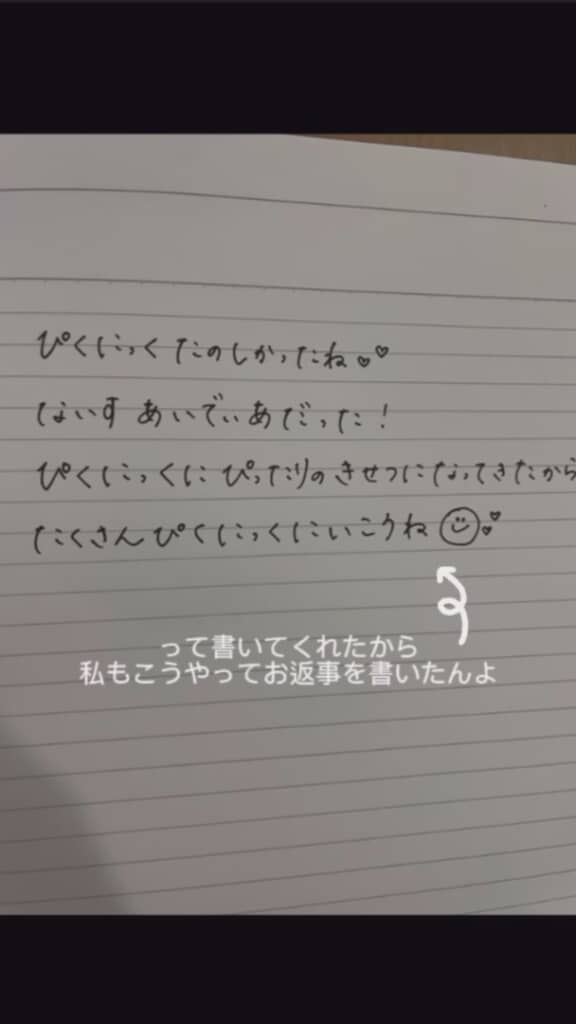 ぴくにっくたのしかったね♡♡
ないすあいでぃあだった！
ぴくにっくにぴったりのきせつになってきたから
たくさんぴくにっくにいこうね☺♡♡
って書いてくれたから
私もこうやってお返事を書いたんよ